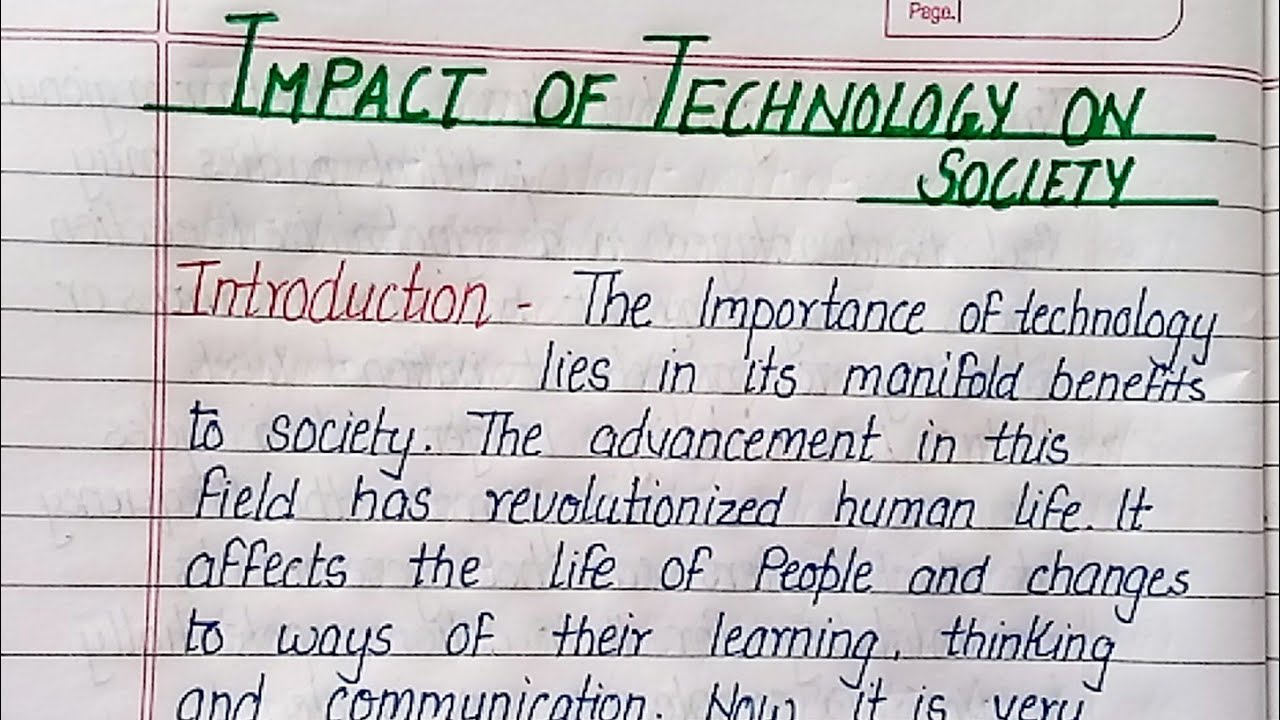 Page.
IMPACT OF TECHNOLOGY ON
SOCIETY
Introduction - The Importance of technology
lies in its manifold benefits
to society. The advancement in this
field has revolutionized human life. It
affects the life of People and changes
to ways of their learning, thinking
and communication. Now it is very